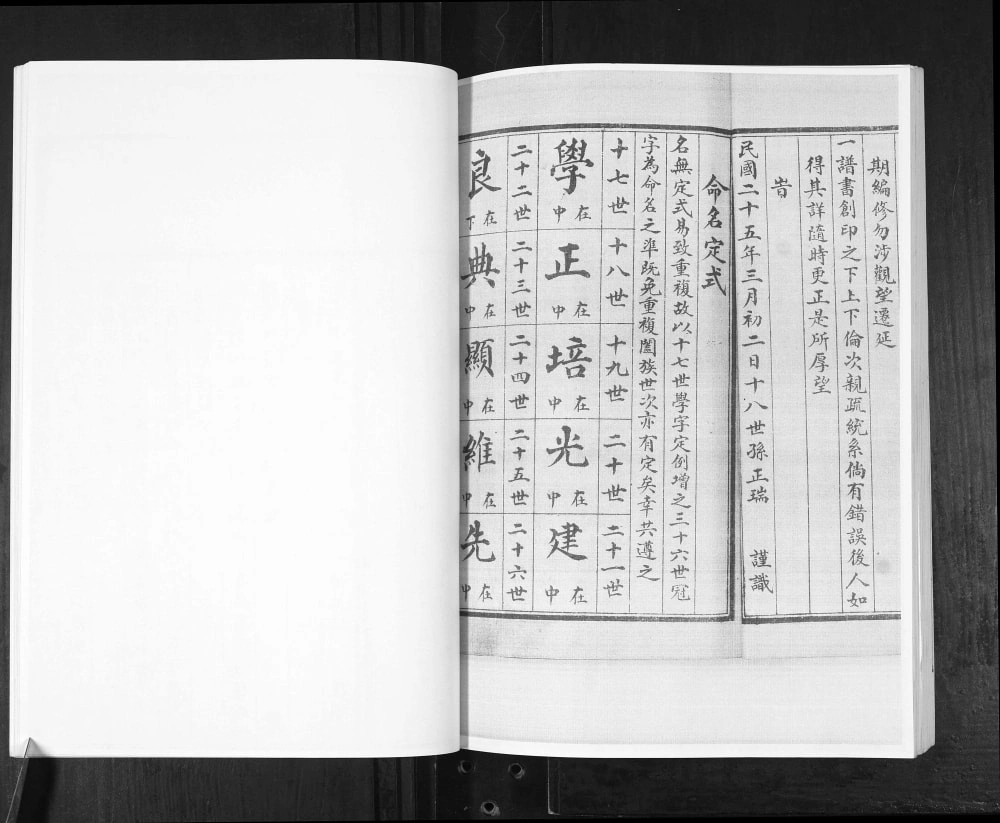 期編修勿涉觀望遷延
一譜書創印之下上下倫次親疏統系倘有錯誤後人如
得其詳隨時更正是所厚望
旹
民國二十五年三月初二日十八世孫正瑞 謹識
命名定式
名無定式易致重複故以十七世學字定例增之三十六世冠
字為命名之準既免重複闔族世次亦有定矣幸共遵之
十七世 十八世 十九世 二十世 二十一世
學 在中 正 在中 培 在中 光 在中 建 在中
二十二世 二十三世 二十四世 二十五世 二十六世
良 在下 典 在中 顯 在中 維 在中 先 在中